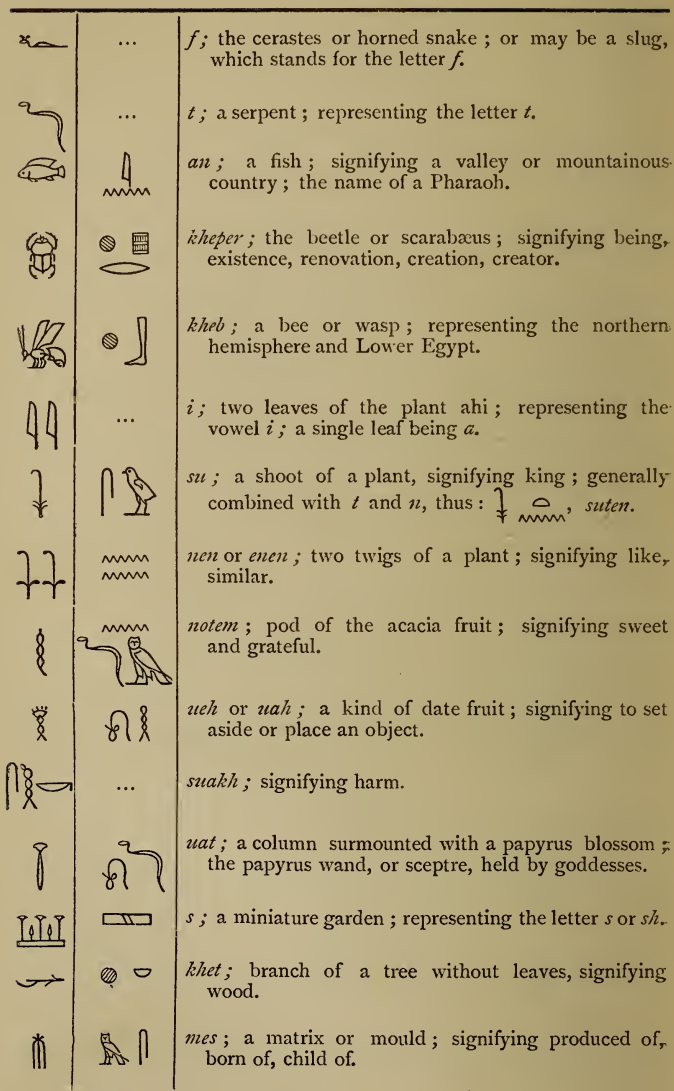 ... f; the cerastes or horned snake ; or may be a slug,
which stands for the letter f.
... t; a serpent ; representing the letter t.
an ; a fish ; signifying a valley or mountainous
country ; the name of a Pharaoh.
kheper ; the beetle or scarabæus ; signifying being,
existence, renovation, creation, creator.
kheb ; a bee or wasp ; representing the northern
hemisphere and Lower Egypt.
... i; two leaves of the plant ahi ; representing the
vowel i ; a single leaf being a.
su ; a shoot of a plant, signifying king ; generally
combined with t and n, thus : , suten.
nen or enen ; two twigs of a plant ; signifying like,
similar.
notem ; pod of the acacia fruit ; signifying sweet
and grateful.
ueh or uah ; a kind of date fruit ; signifying to set
aside or place an object.
... suakh ; signifying harm.
uat ; a column surmounted with a papyrus blossom ;
the papyrus wand, or sceptre, held by goddesses.
s ; a miniature garden ; representing the letter s or sh.
khet ; branch of a tree without leaves, signifying
wood.
mes ; a matrix or mould ; signifying produced of,
born of, child of.